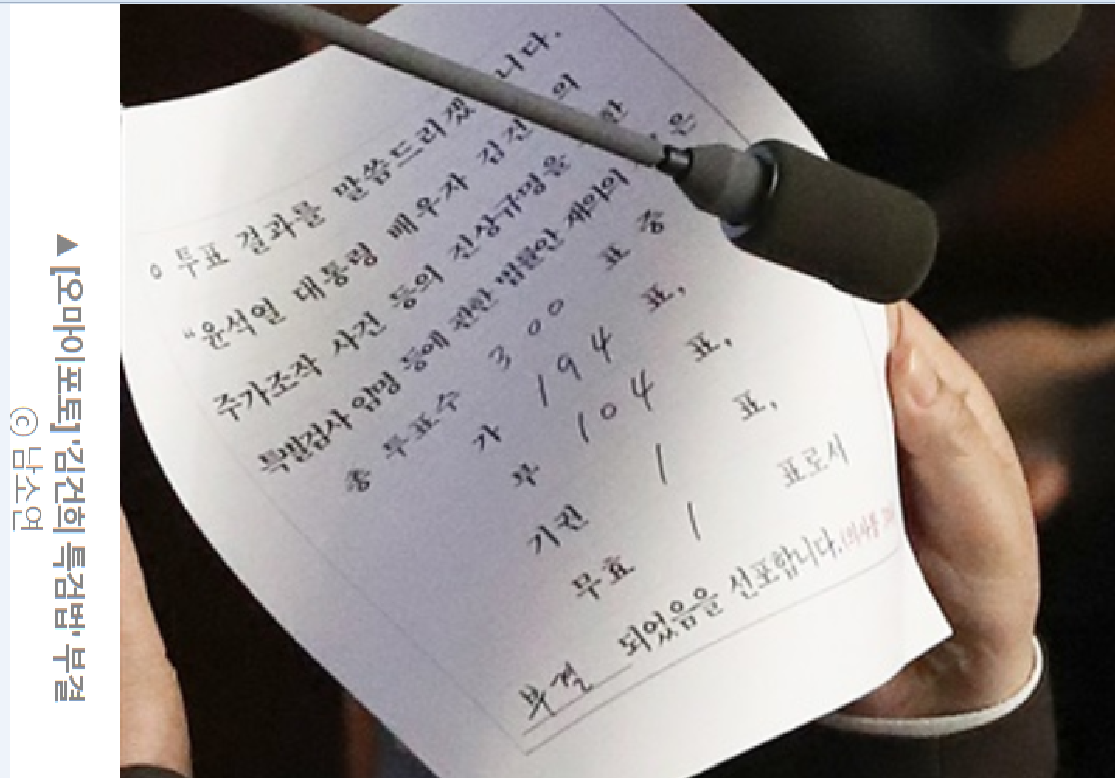 o 투표 결과를 말씀드리겠 니다.
“윤석열 대통령 배우자 김건 의
주가조작 사건 등의 진상규명을 한
특별검사 임명 등에 관한 법률안 재의의 은
총 투표수 300 표 중
가 194 표,
부 104 표,
기권 1 표,
무효 1 표로서
부결 되었음을 선포합니다. (의사봉
▲ [오마이포토] '김건희 특검법' 부결
ⓒ 남소연